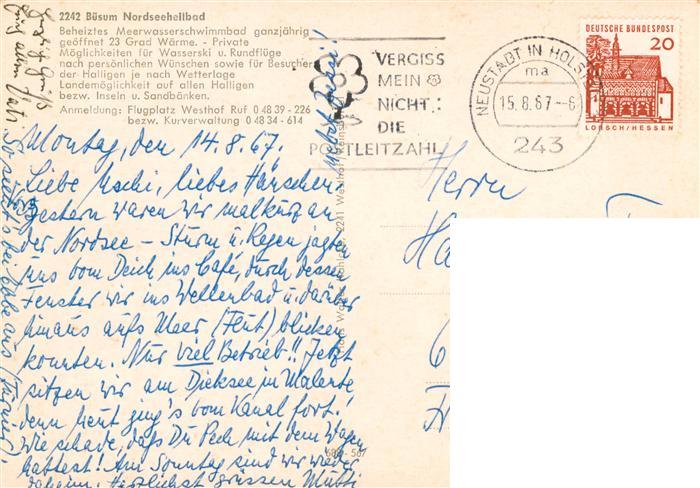 2242 Büsum Nordseeheilbad
Beheiztes Meerwasserschwimmbad ganzjährig
geöffnet 23 Grad Wärme. - Private
Möglichkeiten für Wasserski u. Rundflüge
nach persönlichen Wünschen sowie für Besucher
der Halligen je nach Wetterlage
Landemöglichkeit auf allen Halligen
bezw. Inseln u. Sandbänken.
Anmeldung: Flugplatz Westhof Ruf 0 48 39 - 226
bezw. Kurverwaltung 0 48 34 - 614
VERGISS
MEIN
NICHT:
DIE
POSTLEITZAHL
NEUSTADT IN HOLST
ma
15.8.67.-6
243
DEUTSCHE BUNDESPOST
20
LORSCH/HESSEN
Montag, den 14.8.67.
Liebe Uschi, liebes Hänschen
gestern waren wir mal kurz an
der Nordsee - Sturm u. Regen jagten
uns vom Deich ins Café, durch dessen
Fenster wir ins Wellenbad u. darüber
hinaus aufs Meer (Flut) blicken
konnten. Nur viel Betrieb!! Jetzt
sitzen wir am Dieksee in Malente
denn heut ging's vom Kanal fort!
Wie schade, daß Du Pech mit dem Wagen
hattest! Am Sonntag sind wir wieder
daheim. Herzlichst grüssen Mutti
Herrn
Ha
6
2241 Westhof